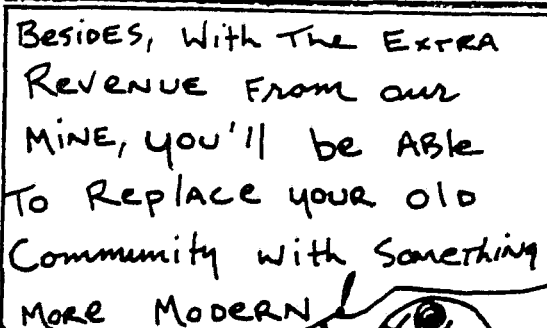 BESIDES, WITH THE EXTRA
REVENUE FROM OUR
MINE, YOU'll be ABle
TO RePlACe YOUR Old
Community with SOMETHING
MORE MODERN!